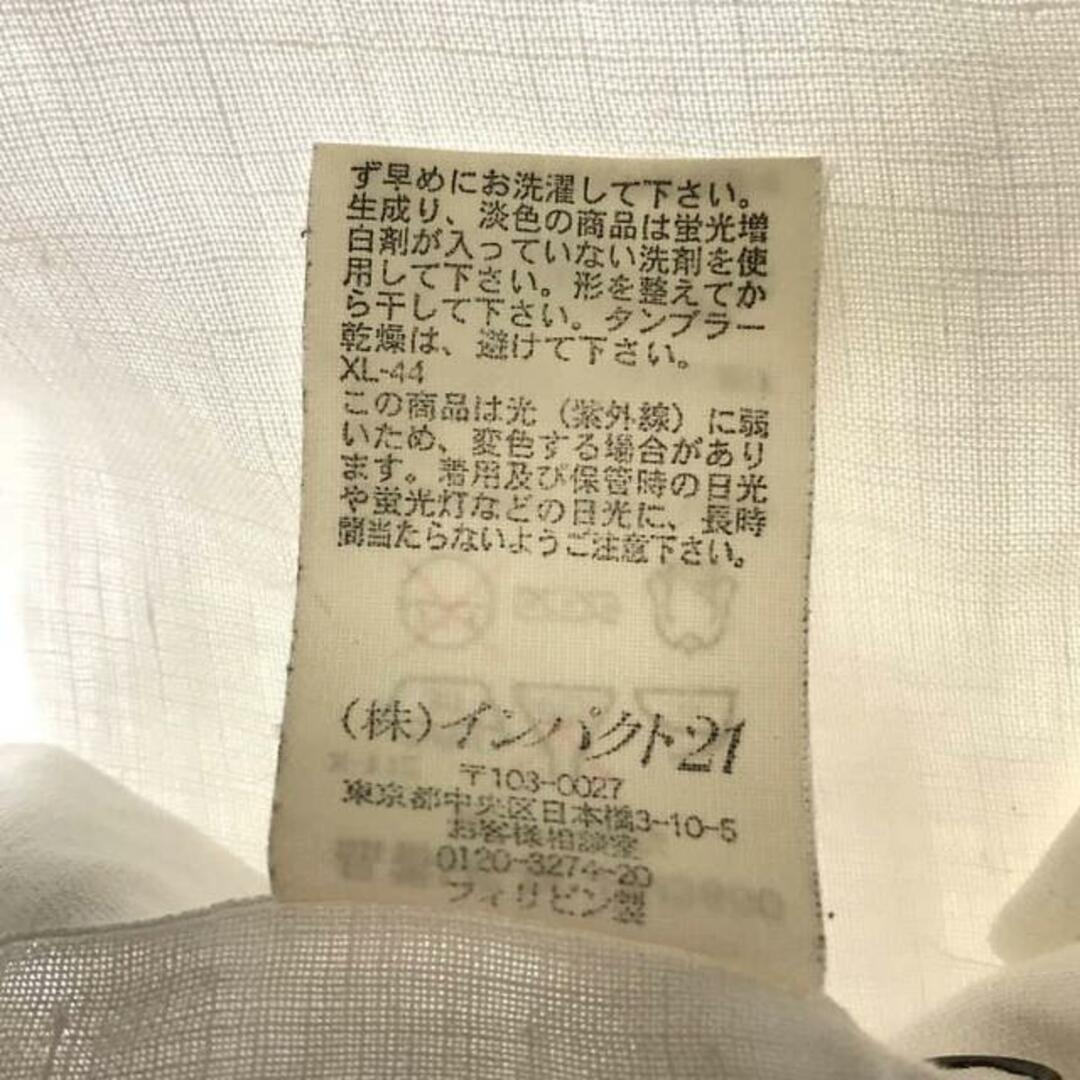 ず早めにお洗濯して下さい。
生成り、淡色の商品は蛍光増
白剤が入っていない洗剤を使
用して下さい。形を整えてか
ら干して下さい。タンブラー
乾燥は、避けて下さい。
XL-44
この商品は光（紫外線）に弱
いため、変色する場合があり
ます。着用及び保管時の日光
や蛍光灯などの日光に、長時
間当たらないようご注意下さい。
（株）インパクト21
〒103-0027
東京都中央区日本橋3-10-5
お客様相談室
0120-3274-20
フィリピン製